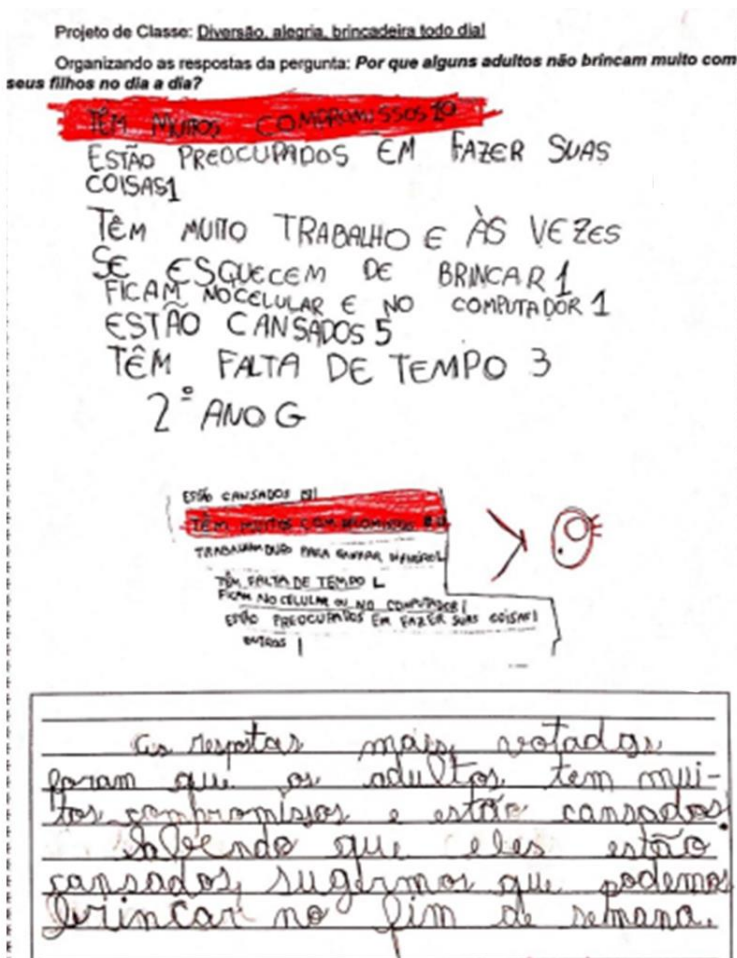 Projeto de Classe: Diversão, alegria, brincadeira todo dia!
Organizando as respostas da pergunta: Por que alguns adultos não brincam muito com
seus filhos no dia a dia?
TÊM MUITOS COMPROMISSOS 10
ESTÃO PREOCUPADOS EM FAZER SUAS
COISAS 1
TÊM MUITO TRABALHO E ÀS VEZES
SE ESQUECEM DE BRINCAR 1
FICAM NO CELULAR E NO COMPUTADOR 1
ESTÃO CANSADOS 5
TÊM FALTA DE TEMPO 3
2º ANO G
ESTÃO CANSADOS
TÊM MUITOS
TRABALHAM DURO PARA GANHAR DINHEIRO
TÊM FALTA DE TEMPO
FICAM NO CELULAR OU NO COMPUTADOR 1
ESTÃO PREOCUPADOS EM FAZER SUAS COISAS 1
OUTROS 1
As respostas mais votadas
foram que os adultos tem mui-
tos compromissos e estão cansados.
Sabendo que eles estão
cansados, sugerimos que podemos
brincar no fim de semana.